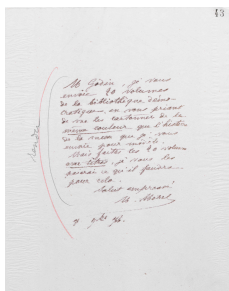 43
M. Godin, je vous
envoie 20 volumes
de la bibliothèque démo-
cratique, en vous priant
de me les cartonner de la
même couleur, que l'histoire
de la que je vous
envoie pour modèle.
Mais faites les 20 volumes
, je vous les
paierai ce qu'il faudra
pour cela.
Salut empressé
M. Morel